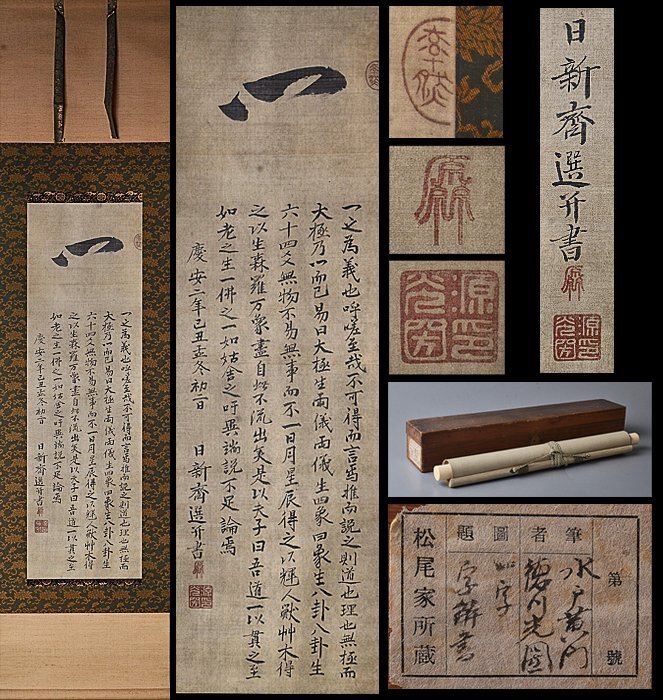 一
一之為義也呼嗟至哉不可得而言焉推而説之則道也理也無極而
大極乃一而已易曰大極生兩儀兩儀生四象四象生八卦八卦生
六十四爻無物不易無事而不一日月星辰得之以輝人獣艸木得
之以生森羅万象盡自此不流出矣是以夫子曰吾道一以貫之至
如老之生一佛之一如姑舎之吁異端説不足論焉
慶安二年己丑孟冬初一日 日新齊選并書
日新齊選并書
第 號
筆者
水戸黄門
徳川光圀
圖題
字解書
松尾家所蔵